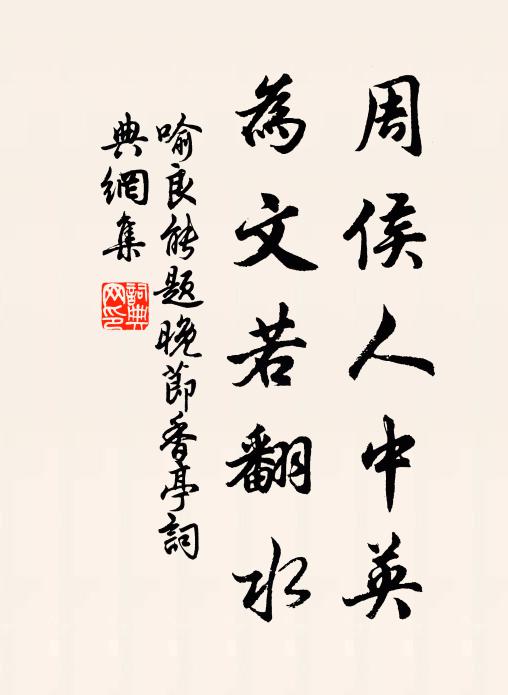 周侯人中英
為文若翻水
喻良能題晚節香亭詞
典網集
詞典網印